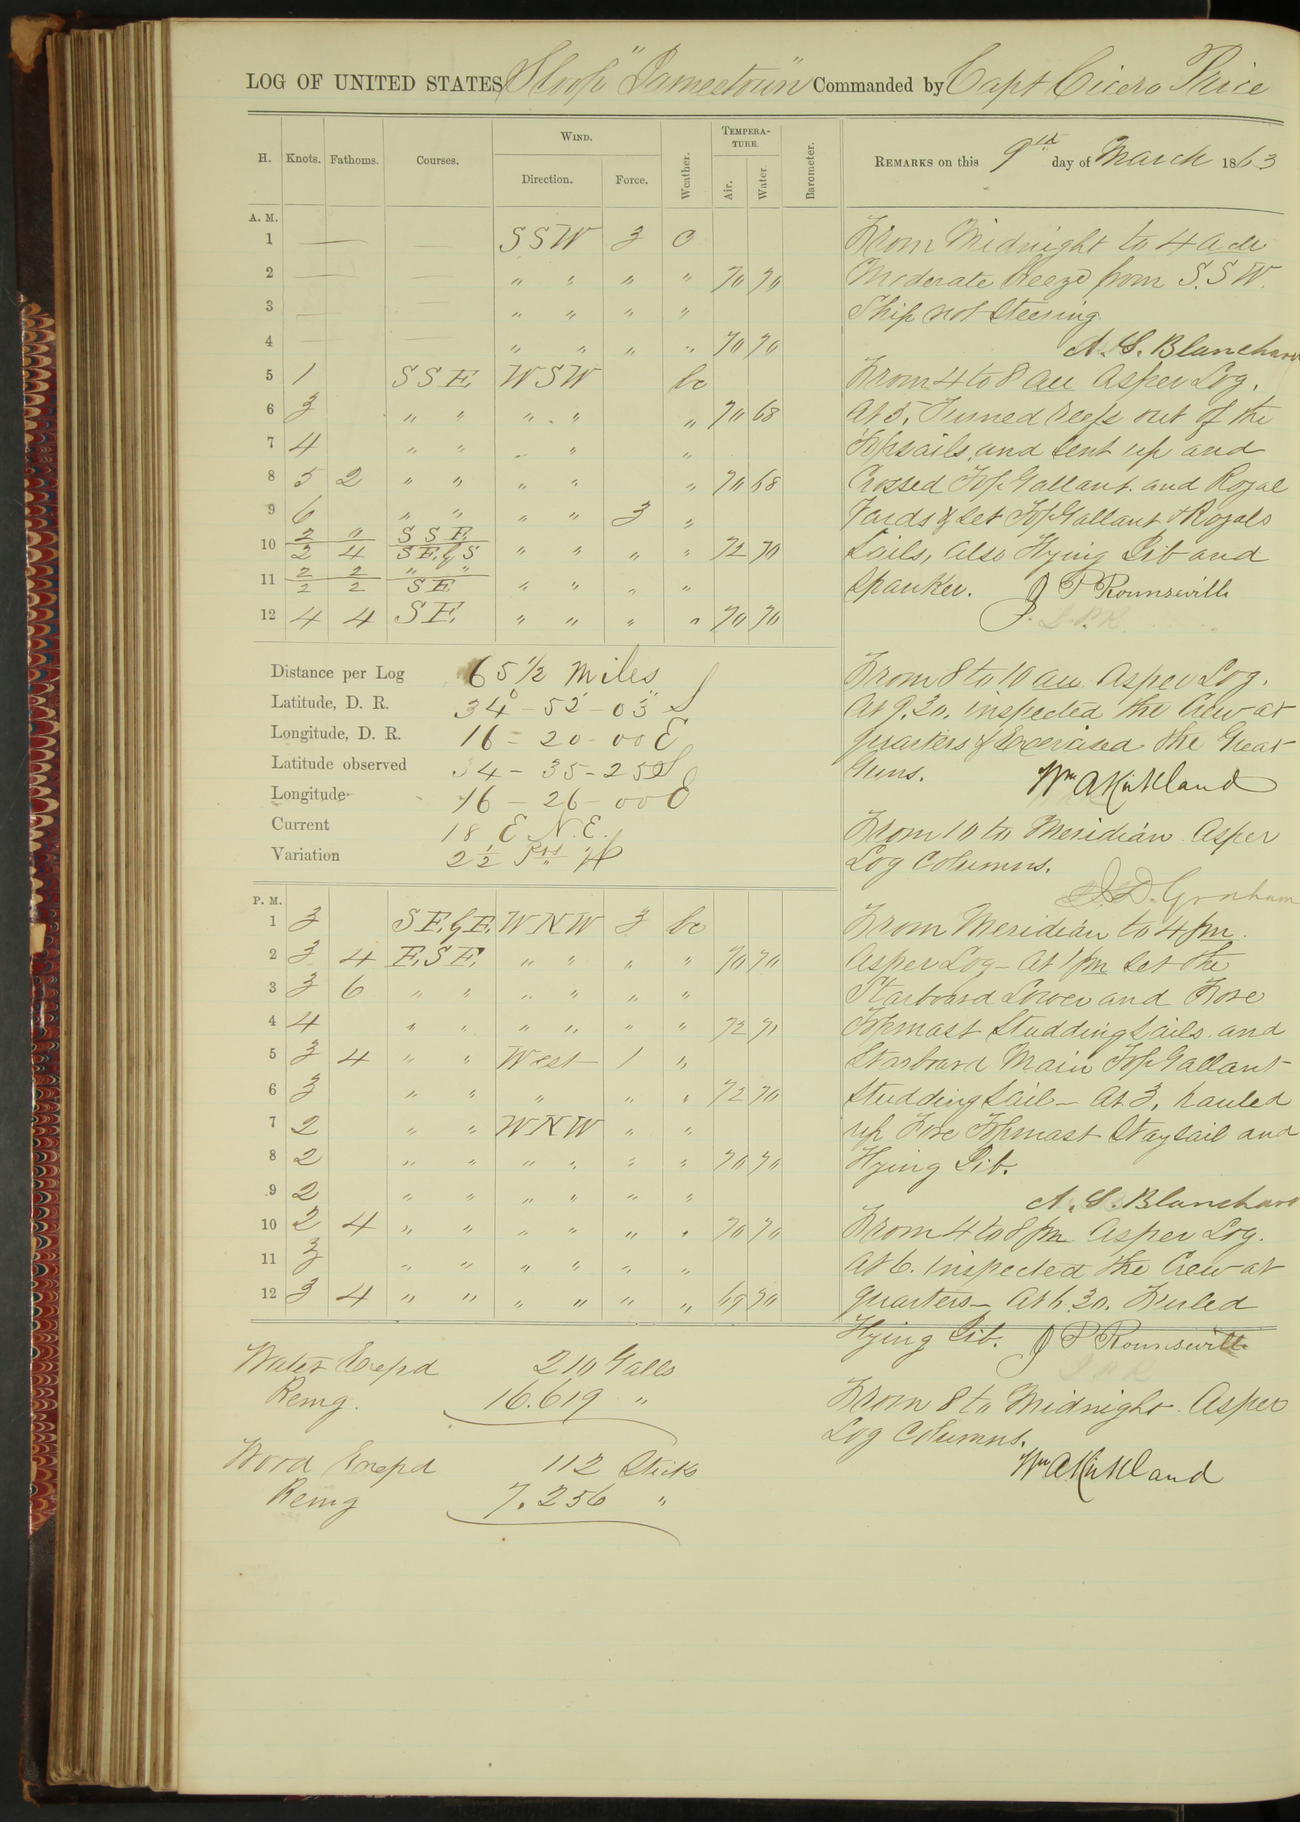 LOG OF UNITED STATES Sloop "Jamestown" Commanded by Capt Cicero Price
H. Knots. Fathoms. Courses. WIND. Direction. Force. Weather. TEMPERATURE. Air. Water. Barometer.
REMARKS on this 9th day of March 1863
A. M.
1 — — SSW 3 c
2 — — " " " " 70 70
3 — — " " " "
4 — — " " " " 70 70
5 1 SSE WSW bc
6 3 " " " " " 70 68
7 4 " " " " "
8 5 2 " " " " " 70 68
9 6 " " " " 3 "
10 2 " SSE
2 4 SE by S " " " " 72 70
11 2 2 " "
2 2 SE " " " "
12 4 4 SE " " " " 70 70
Distance per Log 65 1/2 miles
Latitude, D. R. 34° - 52' - 03" S
Longitude, D. R. 16 - 20 - 00 E
Latitude observed 34 - 35 - 25 S
Longitude 16 - 26 - 00 E
Current 18 E N.E.
Variation 2 1/2 Pts W
P. M.
1 3 SE by E WNW 3 bc
2 3 4 E.SE. " " " " 70 70
3 3 6 " " " " " "
4 4 " " " " " " 72 71
5 3 4 " " West 1 "
6 3 " " " " " 72 70
7 2 " " WNW " "
8 2 " " " " " " 70 70
9 2 " " " " " "
10 2 4 " " " " " " 70 70
11 3 " " " " " "
12 3 4 " " " " " " 69 70
Water Expd 210 Galls
Remg. 16.619 "
Wood Expd 112 Sticks
Remg 7.256 "
From Midnight to 4 am
Moderate breeze from S.SW.
Ship not Steering.
A. S. Blanchard
From 4 to 8 am As per Log.
At 5, Turned reefs out of the
Topsails, and sent up and
Crossed Top Gallant and Royal
Yards & set Top Gallant & Royals
Sails, also Flying Jib and
Spanker. J P Rounsevill
From 8 to 10 am As per Log.
At 9.30. inspected the Crew at
quarters & Exercised the Great
Guns. Wm A Kirkland
From 10 to Meridian As per
Log Columns.
J. D. Graham
From Meridian to 4 pm.
As per Log - At 1 pm set the
Starboard Lower and Fore
Topmast Studdingsails and
Starboard Main Top Gallant
Studding Sail - At 3, hauled
up Fore Topmast Staysail and
Flying Jib.
A. S. Blanchard
From 4 to 8 pm As per Log.
At 6. inspected the Crew at
quarters - At 6.30. Furled
Flying Jib. J P Rounsevill
From 8 to Midnight As per
Log Columns.
Wm A Kirkland